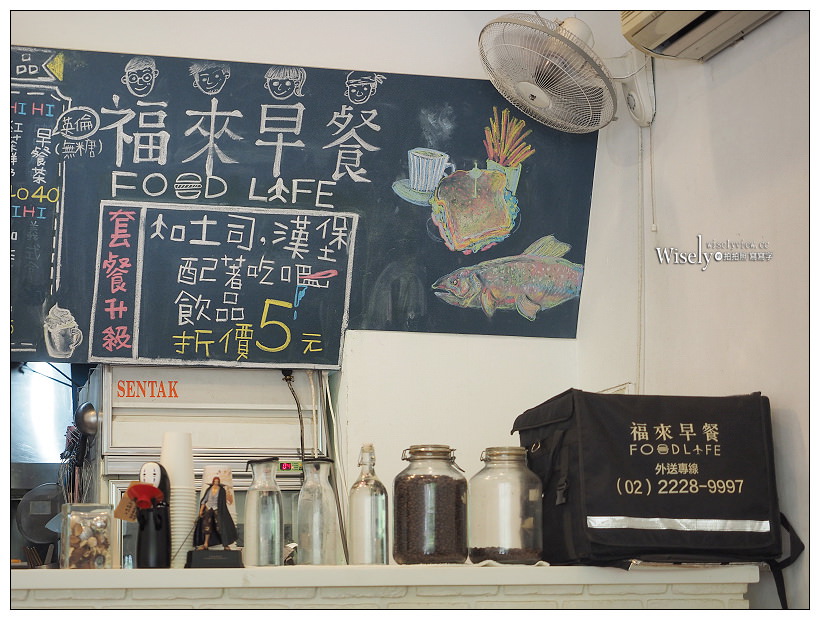 品
HI HI
早餐茶
英倫
(無糖)
40
HI
福來早餐
FOOD LIFE
套餐升級
加土司,漢堡
配著吃吧
飲品
折價5元
wiselyview.cc
Wisely
拍拍照寫寫字
SENTAK
福來早餐
FOODLIFE
外送專線
(02) 2228-9997